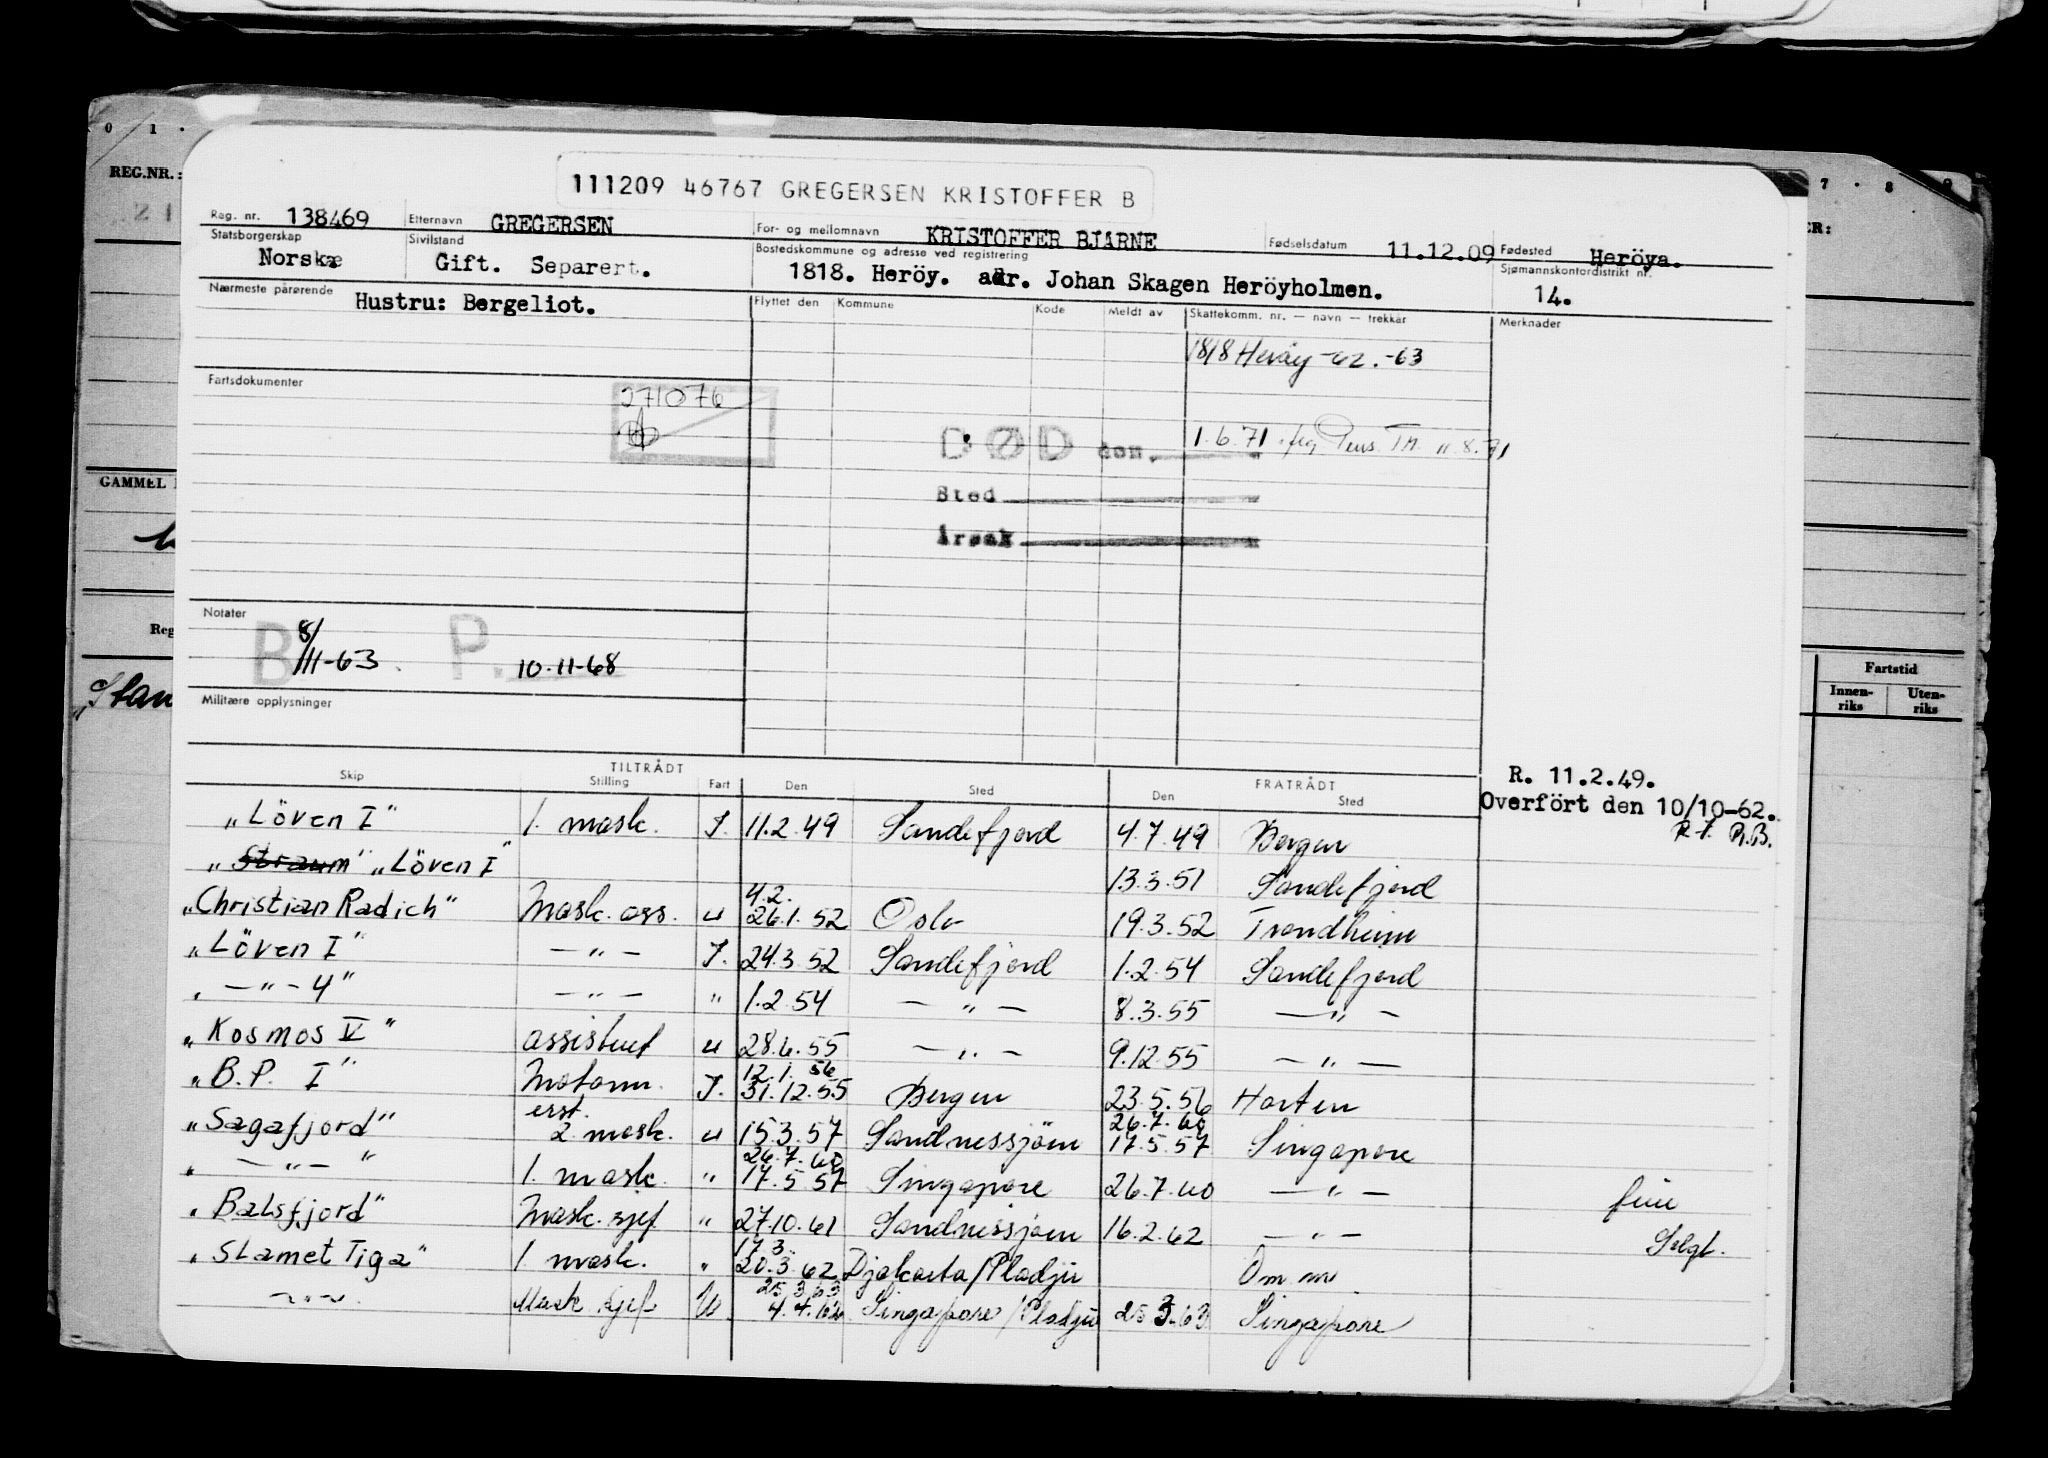 0 1 .
7 . 8 . 9
REG.NR.:
ER:
111209 46767 GREGERSEN KRISTOFFER B
Reg. nr. 138469 Etternavn GREGERSEN For- og mellomnavn KRISTOFFER BJARNE Fødselsdatum 11.12.09 Fødested Heröya.
Statsborgerskap Norsk Sivilstand Gift. Separert. Bostedskommune og adresse ved registrering 1818. Heröy. adr. Johan Skagen Heröyholmen. Sjømannskontordistrikt nr. 14.
Nærmeste pårørende Hustru: Bergeliot. Flyttet den Kommune Kode Meldt av Skattekomm. nr. — navn — trekkår Merknader
1818 Heröy -62. -63
Fartsdokumenter
271076
DØD den 1.6.71 Pens. TM. 8.71
Sted
Årsak
GAMMEL
Notater
B 8/III-63. P. 10-11-68
Reg
Militære opplysninger
Fartstid
Innen-riks Uten-riks
TILTRÅDT FRATRÅDT
Skip Stilling Fart Den Sted Den Sted
R. 11.2.49.
Overfört den 10/10-62.
R.B.
"Löven I" 1. mask. I. 11.2.49 Sandefjord 4.7.49 Bergen
"Straum" "Löven I" 13.3.51 Sandefjord
"Christian Radich" Mask. ass. u 4.2. 26.1.52 Oslo 19.3.52 Trondheim
"Löven I" —"— I. 24.3.52 Sandefjord 1.2.54 Sandefjord
"—"— 4" —"— " 1.2.54 —"— 8.3.55 —"—
"Kosmos V" assistent u 28.6.55 —"— 9.12.55 —"—
"B.P. I" Motorm. I. 12.1.56 31.12.55 Bergen 23.5.56 Horten
"Sagafjord" erst. 2. mask. u 15.3.57 Sandnessjöen 26.7.60 17.5.57 Singapore
"—"—" 1. mask. " 26.7.60 17.5.57 Singapore 26.7.60 —"—
"Balsfjord" Mask. sjef " 27.10.61 Sandnessjöen 16.2.62 —"— Solgt.
"Slamet Tiga" 1 mask. " 17.3. 20.3.62 Djakarta/Pladju Om.
—"— Mask. sjef U 25.3.63 4.4.62 Singapore/Pladju 25.3.63 Singapore